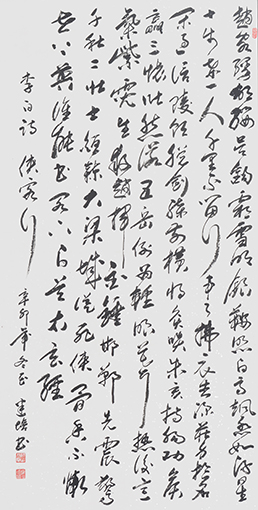 趙客縵胡纓吳鉤霜雪明銀鞍照白馬颯沓如流星
十步殺一人千里不留行事了拂衣去深藏身於名
閑過信陵飲脫劍膝前橫將炙啖朱亥持觴勸侯
嬴三杯吐然諾五岳倒為輕眼花耳熱後意
氣紫霓生救趙揮金錘邯鄲先震驚
千秋二壯士烜赫大梁城縱死俠骨香不慚
世上英誰能書閣下白首太玄經
李白詩俠客行辛卯冬書